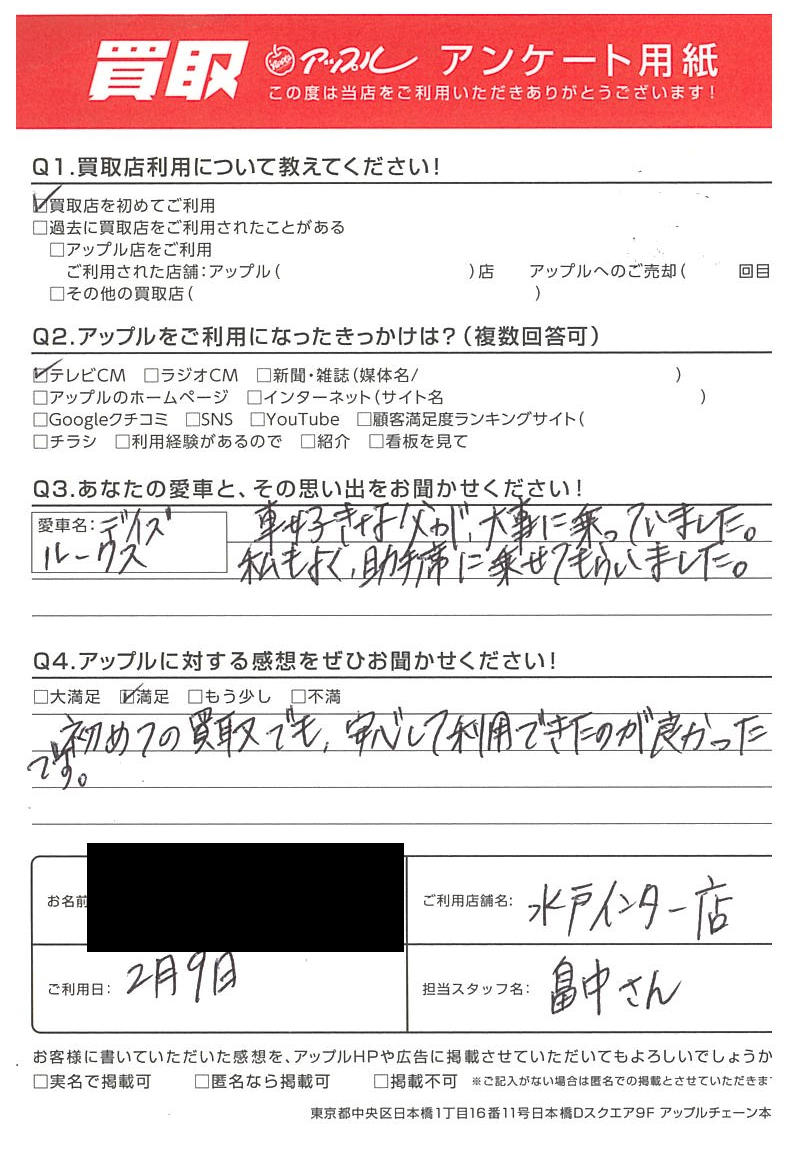 買取 アップル アンケート用紙
この度は当店をご利用いただきありがとうございます!
Q1.買取店利用について教えてください!
☑買取店を初めてご利用
□過去に買取店をご利用されたことがある
□アップル店をご利用
ご利用された店舗:アップル( )店 アップルへのご売却( 回目
□その他の買取店( )
Q2.アップルをご利用になったきっかけは?(複数回答可)
☑テレビCM □ラジオCM □新聞・雑誌(媒体名/ )
□アップルのホームページ □インターネット(サイト名 )
□Googleクチコミ □SNS □YouTube □顧客満足度ランキングサイト(
□チラシ □利用経験があるので □紹介 □看板を見て
Q3.あなたの愛車と、その思い出をお聞かせください!
愛車名:デイズ
ルークス
車好きな父が、大事に乗っていました。
私もよく、助手席に乗せてもらいました。
Q4.アップルに対する感想をぜひお聞かせください!
□大満足 ☑満足 □もう少し □不満
初めての買取でも、安心して利用できたのが良かった
です。
お名前
ご利用店舗名: 水戸インター店
ご利用日: 2月9日
担当スタッフ名: 畠中さん
お客様に書いていただいた感想を、アップルHPや広告に掲載させていただいてもよろしいでしょうか
□実名で掲載可 □匿名なら掲載可 □掲載不可 ※ご記入がない場合は匿名での掲載とさせていただきま
東京都中央区日本橋1丁目16番11号日本橋Dスクエア9F アップルチェーン本